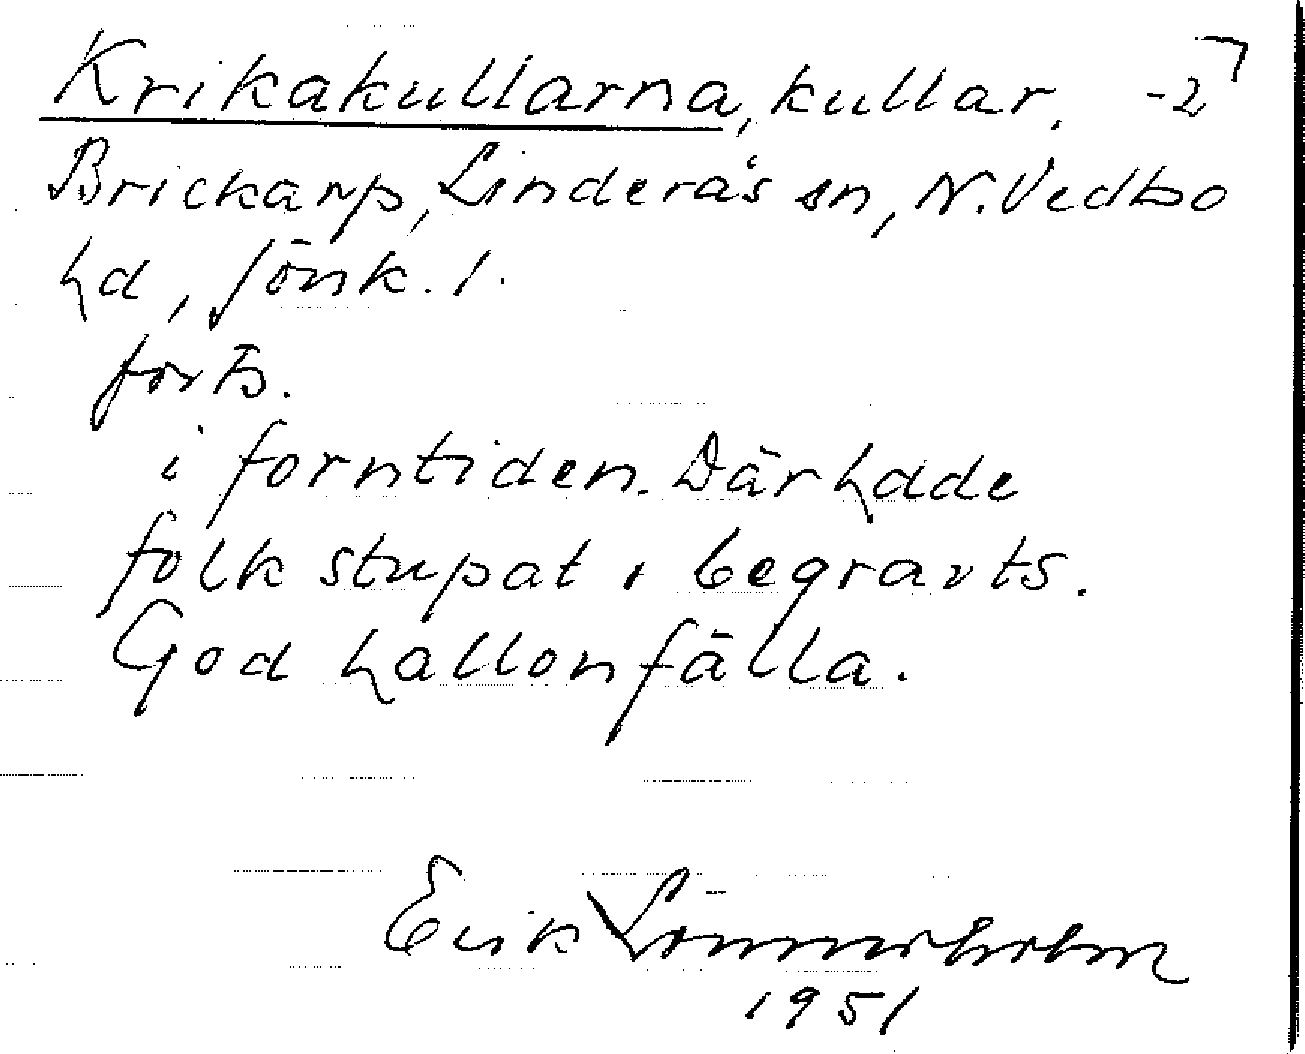 Krikakullarna, kullar. -2
Brickarp, Linderås sn, N. Vedbo
hd, Jönk. l.
forts.
i forntiden. Där hade
folk stupat, begravts.
God hallonfälla.
Erik Lönnerholm
1951